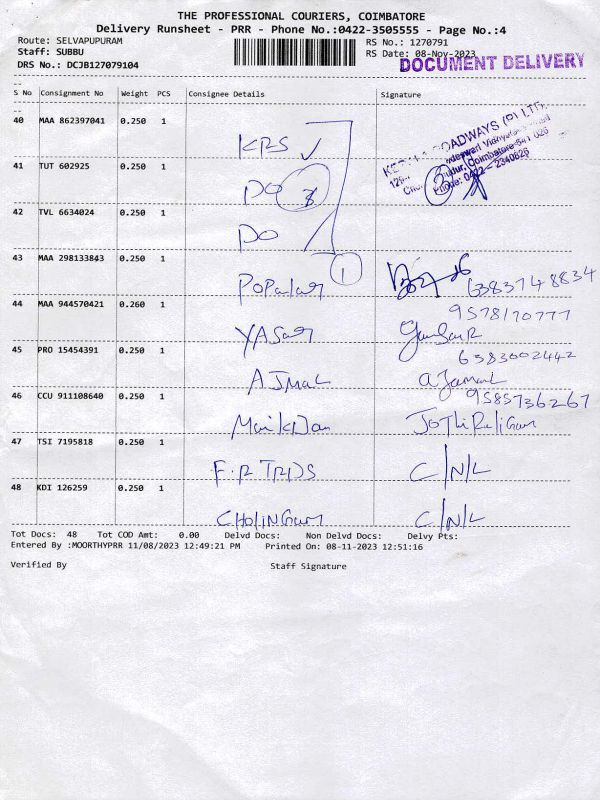 THE PROFESSIONAL COURIERS, COIMBATORE
Delivery Runsheet - PRR - Phone No.:0422-3505555 - Page No.:4
Route: SELVAPUPURAM RS No.: 1270791
Staff: SUBBU RS Date: 08-Nov-2023
DRS No.: DCJB127079104 DOCUMENT DELIVERY
S No Consignment No Weight PCS Consignee Details Signature
40 MAA 862397041 0.250 1
KRS ✓ ROADWAYS (P) LTD.
41 TUT 602925 0.250 1 Coimbatore-641 026
DO 3 Phone: 0422-2340626
42 TVL 6634024 0.250 1
DO
43 MAA 298133843 0.250 1 1
Popular 6383748834
44 MAA 944570421 0.260 1 9578170777
YASar
45 PRO 15454391 0.250 1 6383002442
AJMaL aJamaL
46 CCU 911108640 0.250 1 9585736267
47 TSI 7195818 0.250 1
F.R TRDS C/N/L
48 KDI 126259 0.250 1
C/N/L
Tot Docs: 48 Tot COD Amt: 0.00 Delvd Docs: Non Delvd Docs: Delvy Pts:
Entered By :MOORTHYPRR 11/08/2023 12:49:21 PM Printed On: 08-11-2023 12:51:16
Verified By Staff Signature